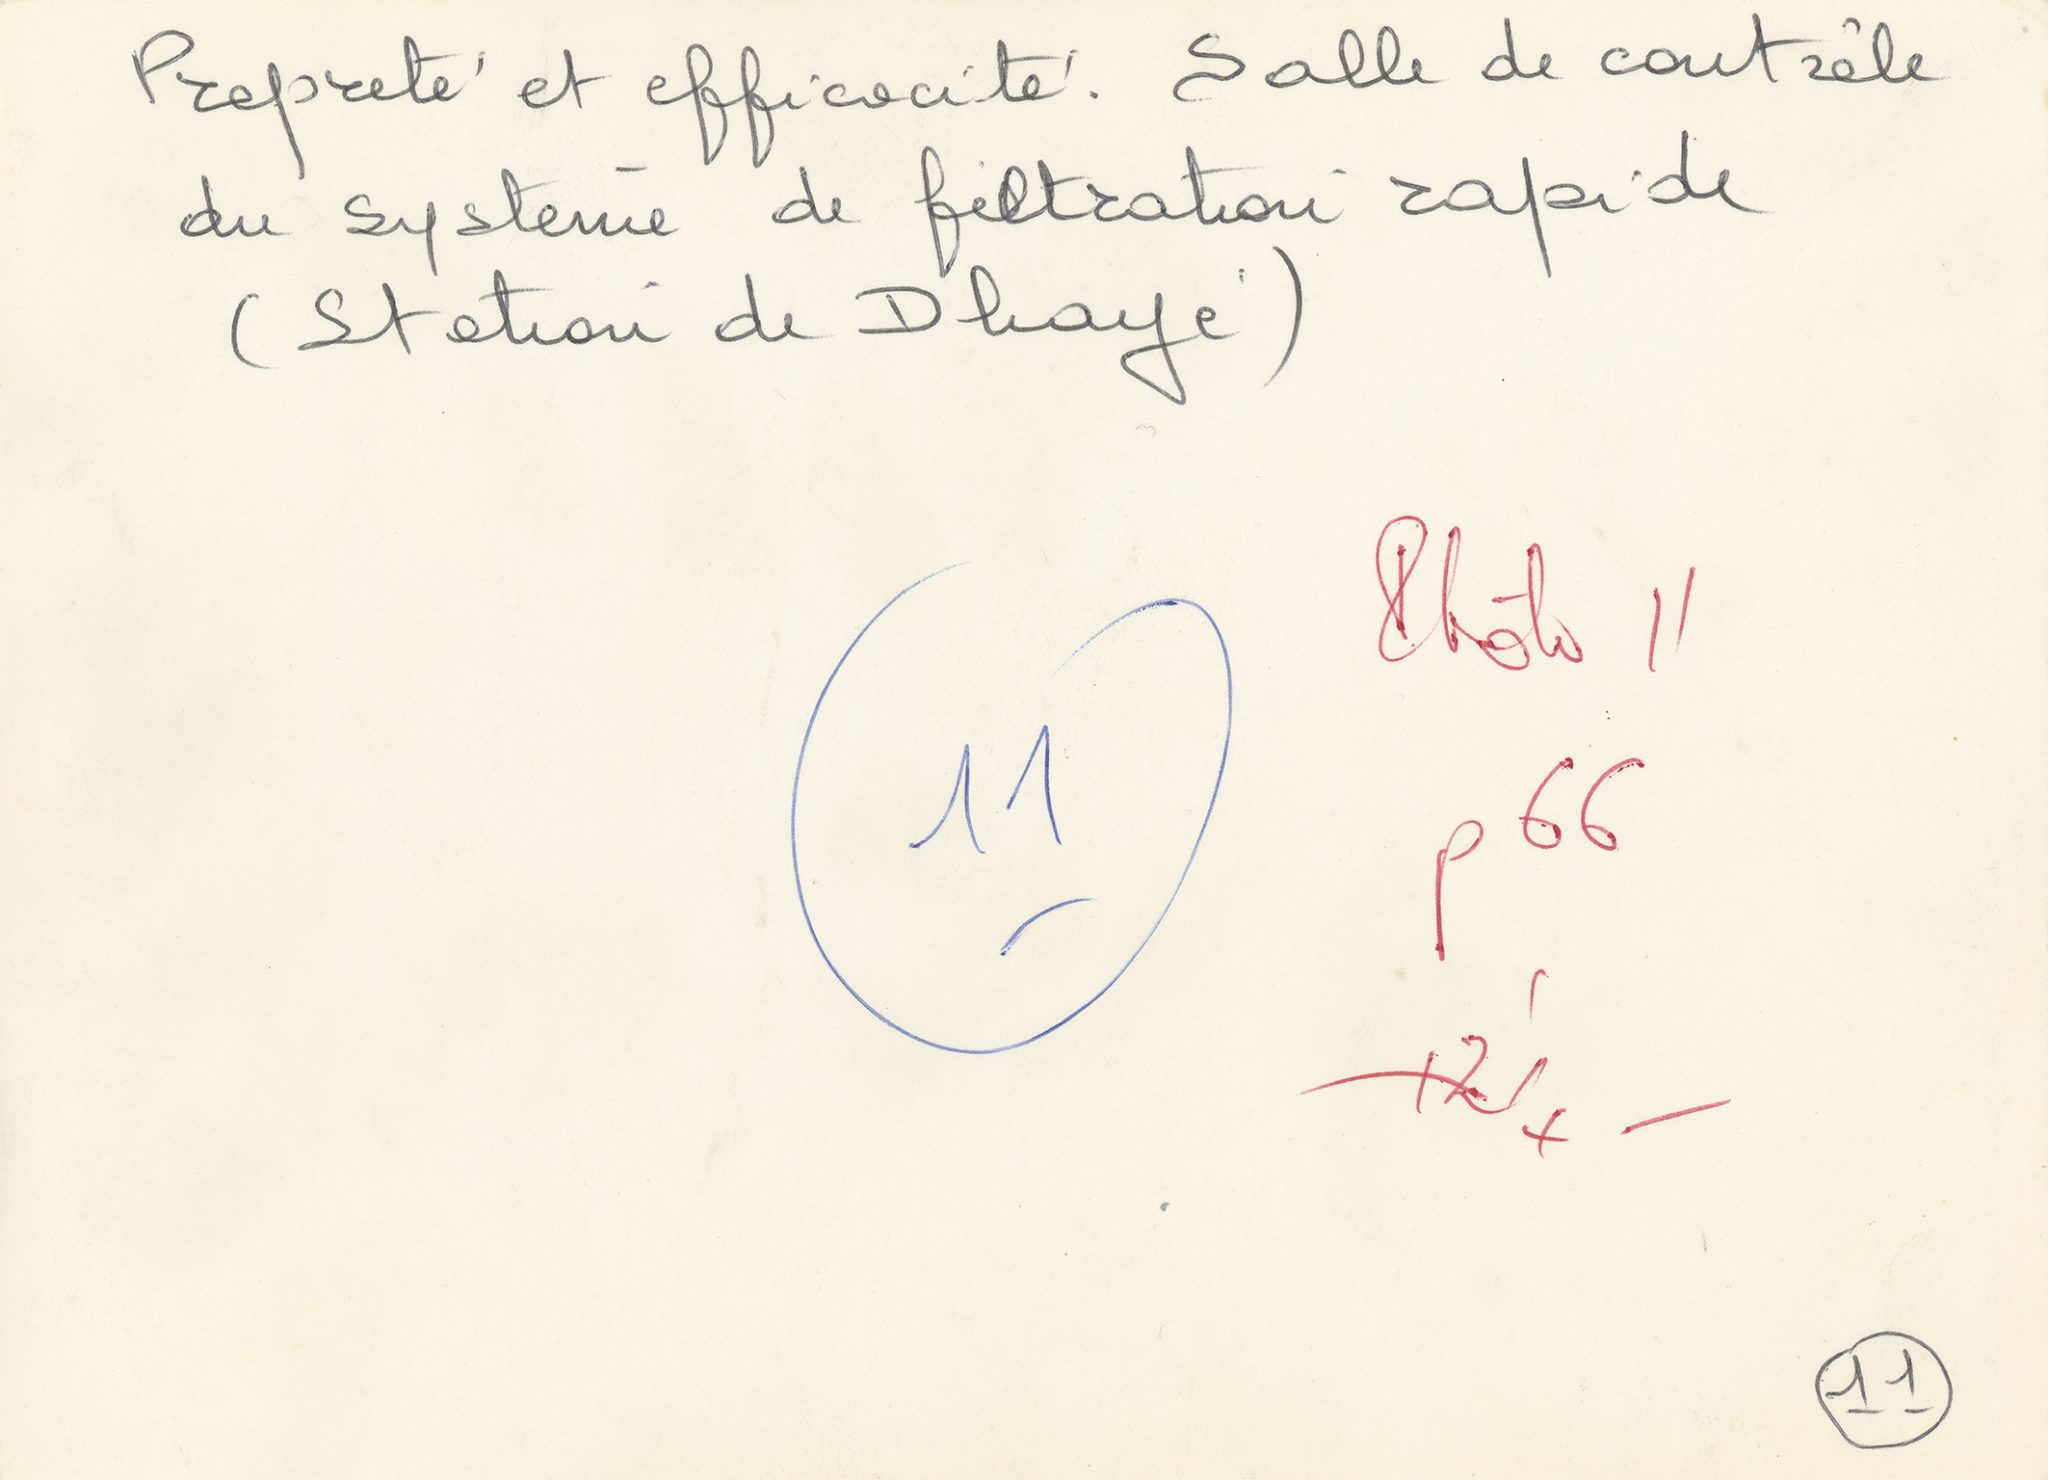 Propreté et efficacité. Salle de contrôle
du système de filtration rapide
(Station de Dbayé)
Photo 11
p 66
11
11